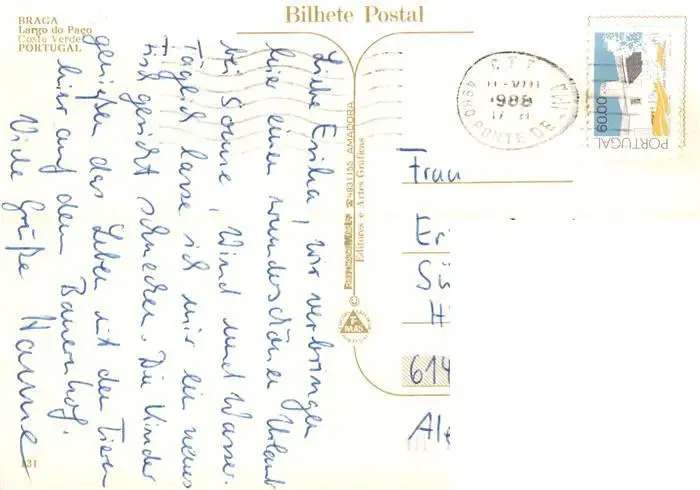 BRAGA
Largo do Paço
Costa Verde
PORTUGAL
Bilhete Postal
Liebe Erika, wir verbringen
hier einen wunderschönen Urlaub
bei Sonne, Wind und Wasser.
Täglich lasse ich mir ein neues
Fischgericht schmecken. Die Kinder
genießen das Leben mit den Tieren
hier auf dem Bauernhof.
Viele Grüße Hanne
131
2493 1155 AMADORA
Editores e Artes Gráficas
©
MAS
CTT
11-VIII
1988
17 H
4990 PONTE DE
60.00
PORTUGAL
Frau
Er
Sü
H
614
Ale